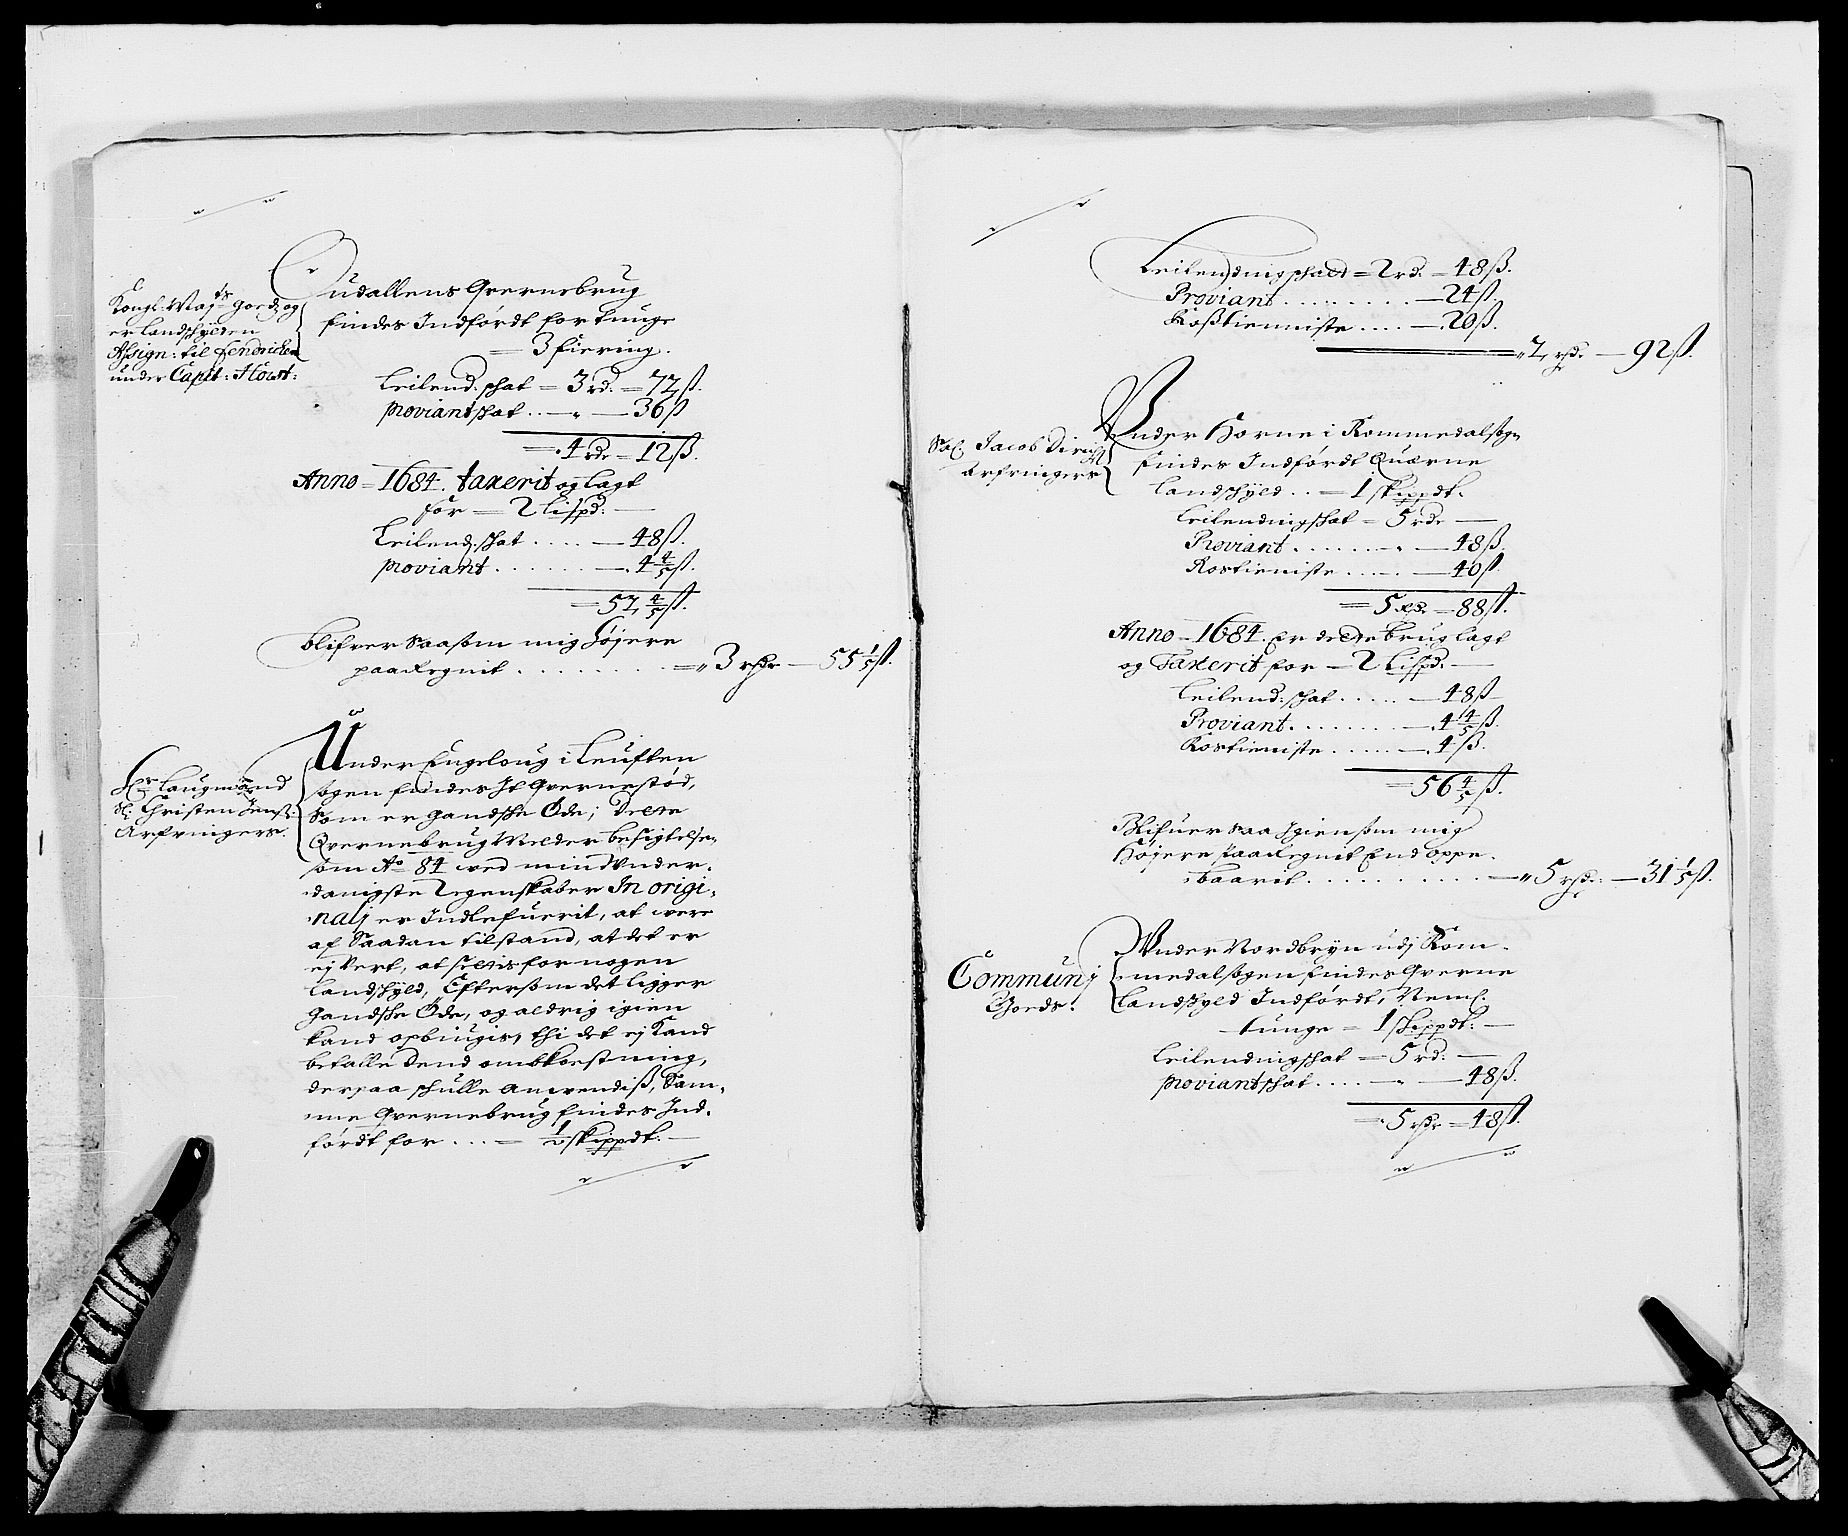 Kongl: Maj:ts Goedz og
er landschÿlden
Assign: til fendricken
under Capit: Howst:
Gudallens Qvernebrug
findes Indfördt for tunge
= 3 fiering.
Leilend: schat = 3 rd. = 72 ß.
proviantschat .. — „ — 36 ß
= 4 rdr = 12 ß.
Anno = 1684. taxerit og lagt
for = 2 Lispd: —
Leilend: schat .... — 48 ß.
proviant ....... — 4 4/5 ß.
= 52 4/5 ß.
blifver saasom mig höjere
paaRegnit ........ = „ 3 rsdr — 55 1/5 ß.
Hr Laugmand
Sl: Christen Jens:
Arfvinger.
Under Engeloug i Leuften
sogen findes It Qvernestöd,
som er gandsche Öde; dette
Qvernebrug Melder besigtelsen
som Ao 84 wed mind Under-
danigste Regenskaber In origi-
nalj er Indlefuerit, at were
af Saadan tilstand, at det er
ej Vert, at settis for nogen
Landschÿld, Eftersom det ligger
gandsche Öde, og aldrig igien
kand opbiugis, thi det ej Kand
betalle dend ombkostning,
derpaa schulle anwendiß, Sam-
me Qvernebrug findes Ind-
fördt for ... = 1/2 skippdt: —
Leilendingschat = 2 rd. — 48 ß.
Proviant ......... — 24 ß.
Roßtienniste .... — 20 ß.
„ 2 rsdr — 92 ß.
Sal. Jacob Dirichs
Arfvingers
Under Horne i Rommedalsogn
findes Indfördt Quærne
landschÿld .. = 1 skippdt.
Leilendingschat = 5 rdr —
Proviant ....... „ — 48 ß.
Rostieniste ..... — 40 ß.
= 5 Rdr = 88 ß.
Anno = 1684. Er dette brug lagt
og Taxerit for — 2 Lispd: —
Leilend: schat ..... — 48 ß
Proviant ........ — 4 4/5 ß.
Rostieniste ...... — 4 ß.
= 56 4/5 ß.
Blifuer saa Igien som mig
Höjere paaRegnit End oppe-
baarit ........... — „ 5 rsdr: — 31 1/5 ß.
Communj
Goeds.
Under Nordbrÿn udj Rom-
medalsogen findes Qverne
landschÿld Indfördt, Neml.
tunge = 1 skippdt: —
Leilendingschat = 5 rd: —
proviantschat .... — „ — 48 ß.
= 5 rsdr = 48 ß.